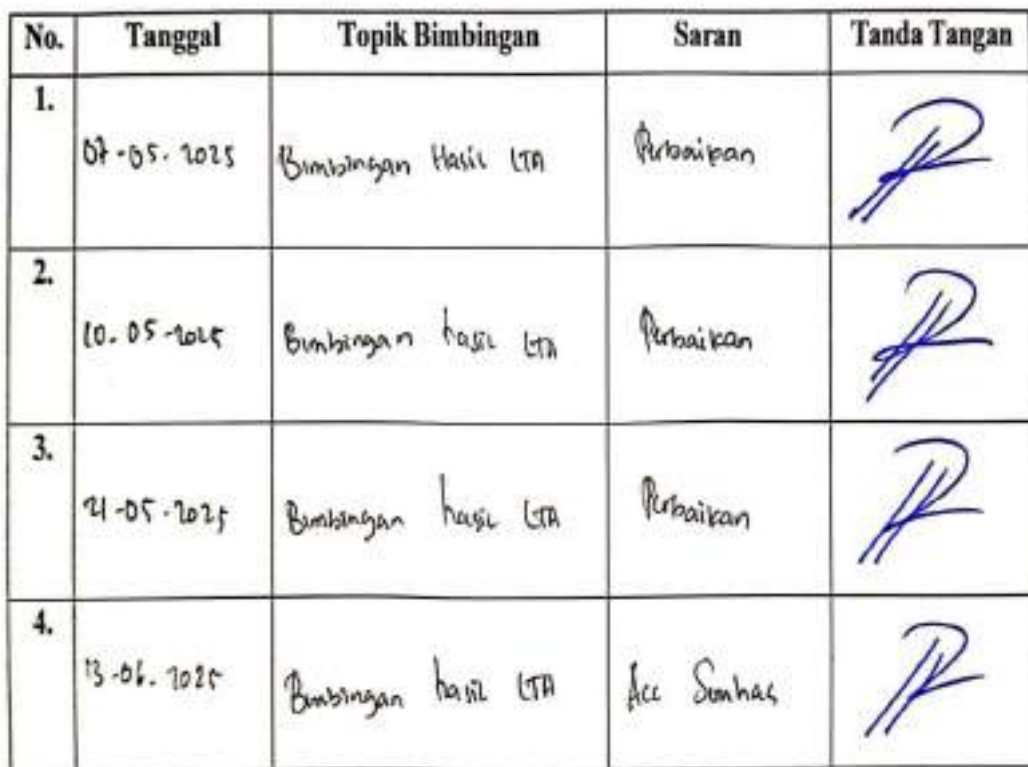 No. Tanggal Topik Bimbingan Saran Tanda Tangan
1. 07-05-2025 Bimbingan Hasil LTA Perbaikan
2. 20-05-2025 Bimbingan hasil LTA Perbaikan
3. 21-05-2025 Bimbingan hasil LTA Perbaikan
4. 13-06-2025 Bimbingan hasil LTA Acc Semhas